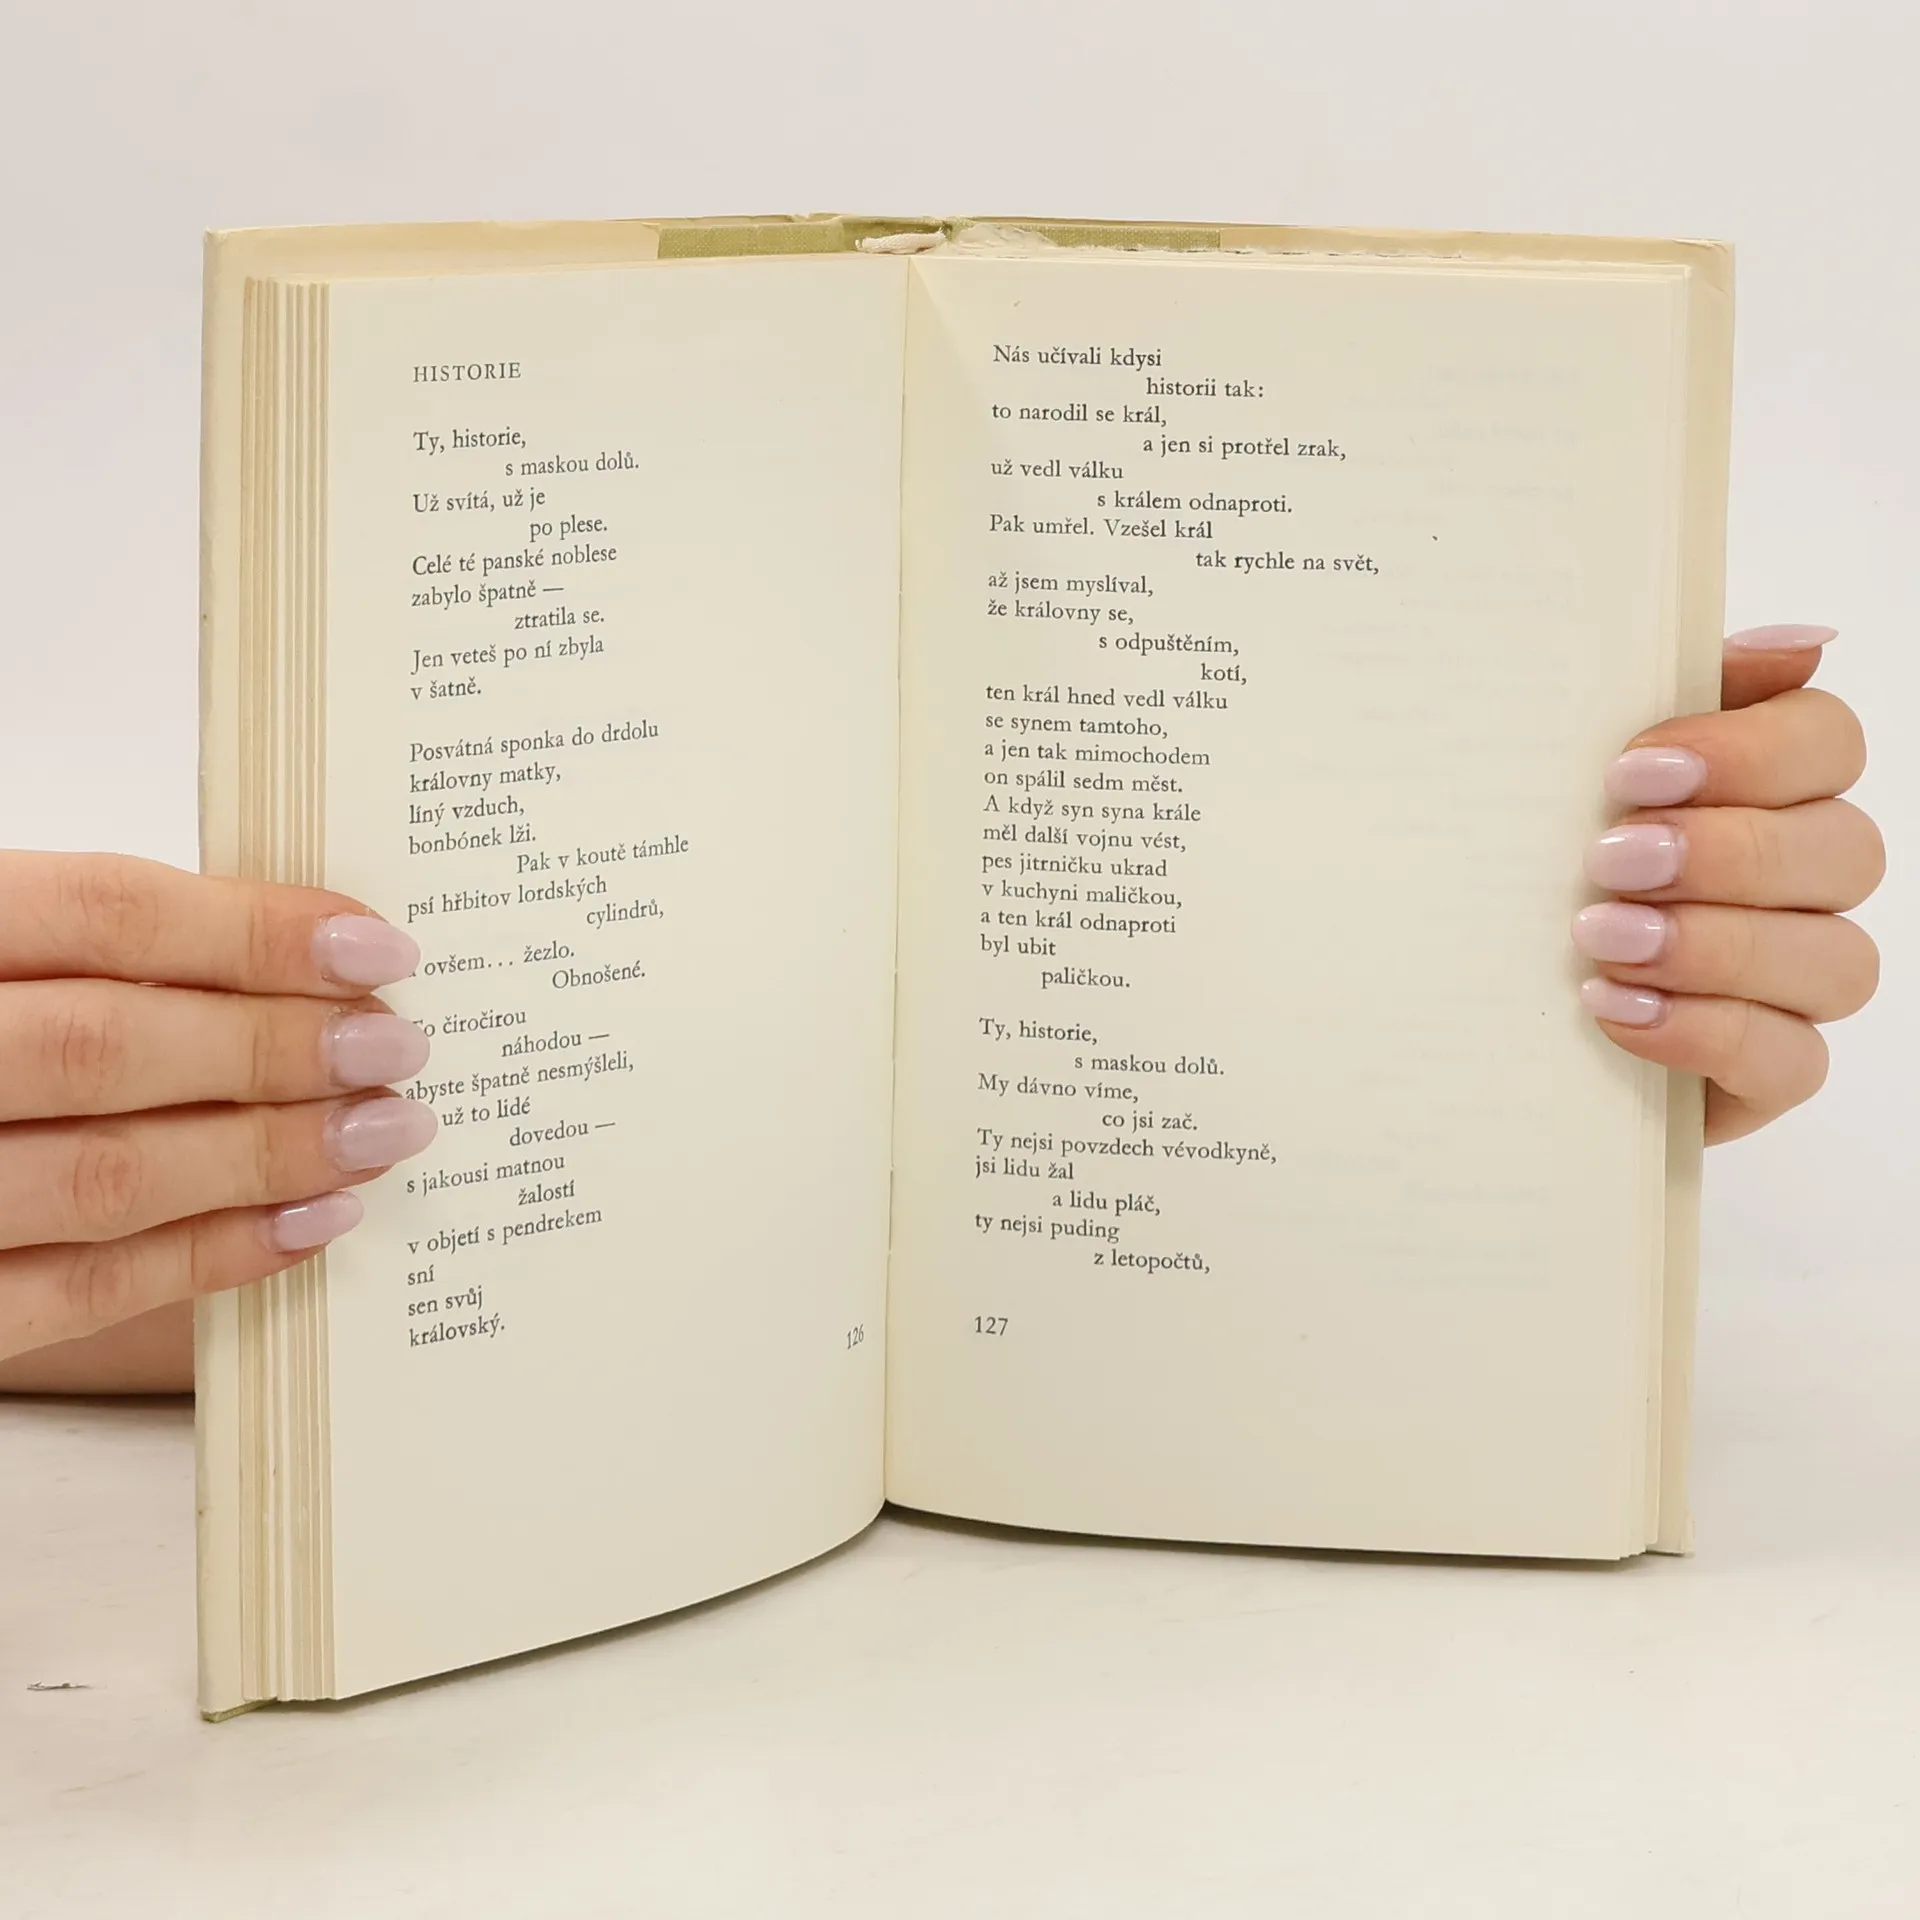 HISTORIE
Ty, historie,
s maskou dolů.
Už svítá, už je
po plese.
Celé té panské noblese
zabylo špatně —
ztratila se.
Jen veteš po ní zbyla
v šatně.
Posvátná sponka do drdolu
královny matky,
líný vzduch,
bonbónek lži.
Pak v koutě támhle
psí hřbitov lordských
cylindrů,
ovšem... žezlo.
Obnošené.
To čiročirou
náhodou —
abyste špatně nesmýšleli,
už to lidé
dovedou —
s jakousi matnou
žalostí
v objetí s pendrekem
sní
sen svůj
královský.
126
Nás učívali kdysi
historii tak:
to narodil se král,
a jen si protřel zrak,
už vedl válku
s králem odnaproti.
Pak umřel. Vzešel král
tak rychle na svět,
až jsem myslíval,
že královny se,
s odpuštěním,
kotí,
ten král hned vedl válku
se synem tamtoho,
a jen tak mimochodem
on spálil sedm měst.
A když syn syna krále
měl další vojnu vést,
pes jitrničku ukrad
v kuchyni maličkou,
a ten král odnaproti
byl ubit
paličkou.
Ty, historie,
s maskou dolů.
My dávno víme,
co jsi zač.
Ty nejsi povzdech vévodkyně,
jsi lidu žal
a lidu pláč,
ty nejsi puding
z letopočtů,
127